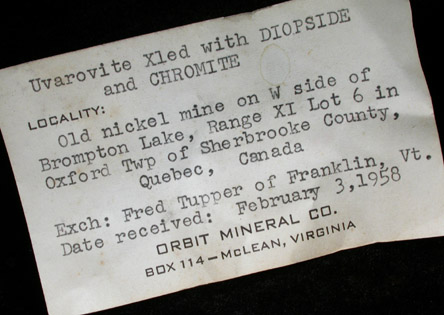 Uvarovite Xled with DIOPSIDE
and CHROMITE
LOCALITY:
Old nickel mine on W side of
Brompton Lake, Range XI Lot 6 in
Oxford Twp of Sherbrooke County,
Quebec, Canada
Exch: Fred Tupper of Franklin, Vt.
Date received: February 3,1958
ORBIT MINERAL CO.
BOX 114—McLEAN, VIRGINIA